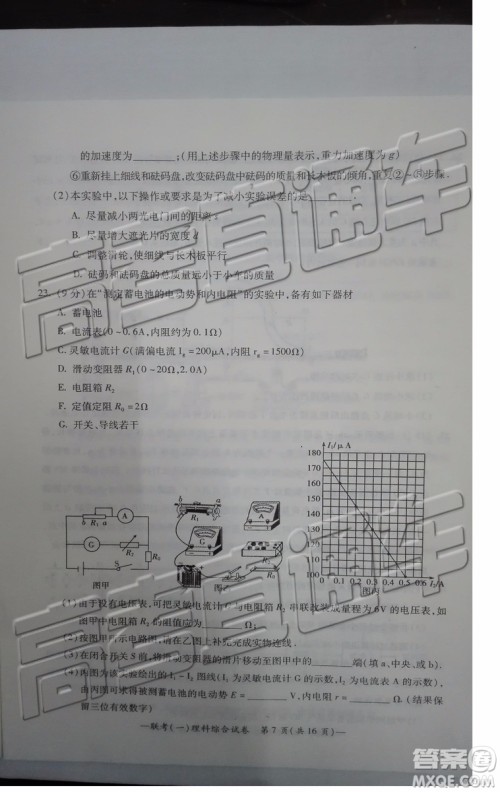 的加速度为________;(用上述步骤中的物理量表示,重力加速度为 g)
⑥重新挂上细线和砝码盘,改变砝码盘中砝码的质量和长木板的倾角,重复②~⑤步骤.
(2)本实验中,以下操作或要求是为了减小实验误差的是________.
A. 尽量减小两光电门间的距离 s
B. 尽量增大遮光片的宽度 d
C. 调整滑轮,使细线与长木板平行
D. 砝码和砝码盘的总质量远小于小车的质量
23. (9分)在"测定蓄电池的电动势和内电阻"的实验中,备有如下器材
A. 蓄电池
B. 电流表(0~0.6A,内阻约为0.1Ω)
C. 灵敏电流计 G(满偏电流 Ig=200μA,内阻 rg=1500Ω)
D. 滑动变阻器 R1(0~20Ω,2.0A)
E. 电阻箱 R2
F. 定值定阻 R0=2Ω
G. 开关、导线若干
b R1 a A
G R2
R0
E S
图甲
a b
R1 A
G
图乙
I1/μA
180
170
160
150
140
130
120
110
100
0 0.1 0.2 0.3 0.4 0.5 0.6 I2/A
图丙
(1)由于没有电压表,可把灵敏电流计 G 与电阻箱 R2 串联改装成量程为6V的电压表,如
图甲中电阻箱 R2 的阻值应为________Ω;
(2)按图甲所示电路图,请在乙图上补充完成实物连线.
(3)在闭合开关 S 前,将滑动变阻器的滑片移动至图甲中的________端(填 a、中央、或 b).
(4)丙图为该实验绘出的 I1-I2 图线(I1 为灵敏电流计 G 的示数,I2 为电流表 A 的示数),
由丙图可求得被测蓄电池的电动势 E=________V,内电阻 r=________Ω.(结果保
留三位有效数字)
—联考(一)理科综合试卷 第7页(共16页)—
高考直通车
高考直通车
答案圈
MXQE.COM